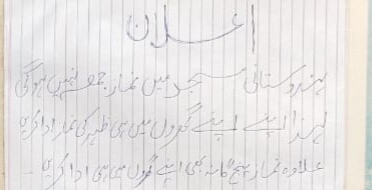 اعلان
ہندوستانی مسجد میں نماز جمعہ نہیں ہوگی
لہذا اپنے اپنے گھروں میں ہی ظہر کی نماز ادا کریں
علاوہ نماز پنج گانہ بھی اپنے گھروں میں ہی ادا کریں